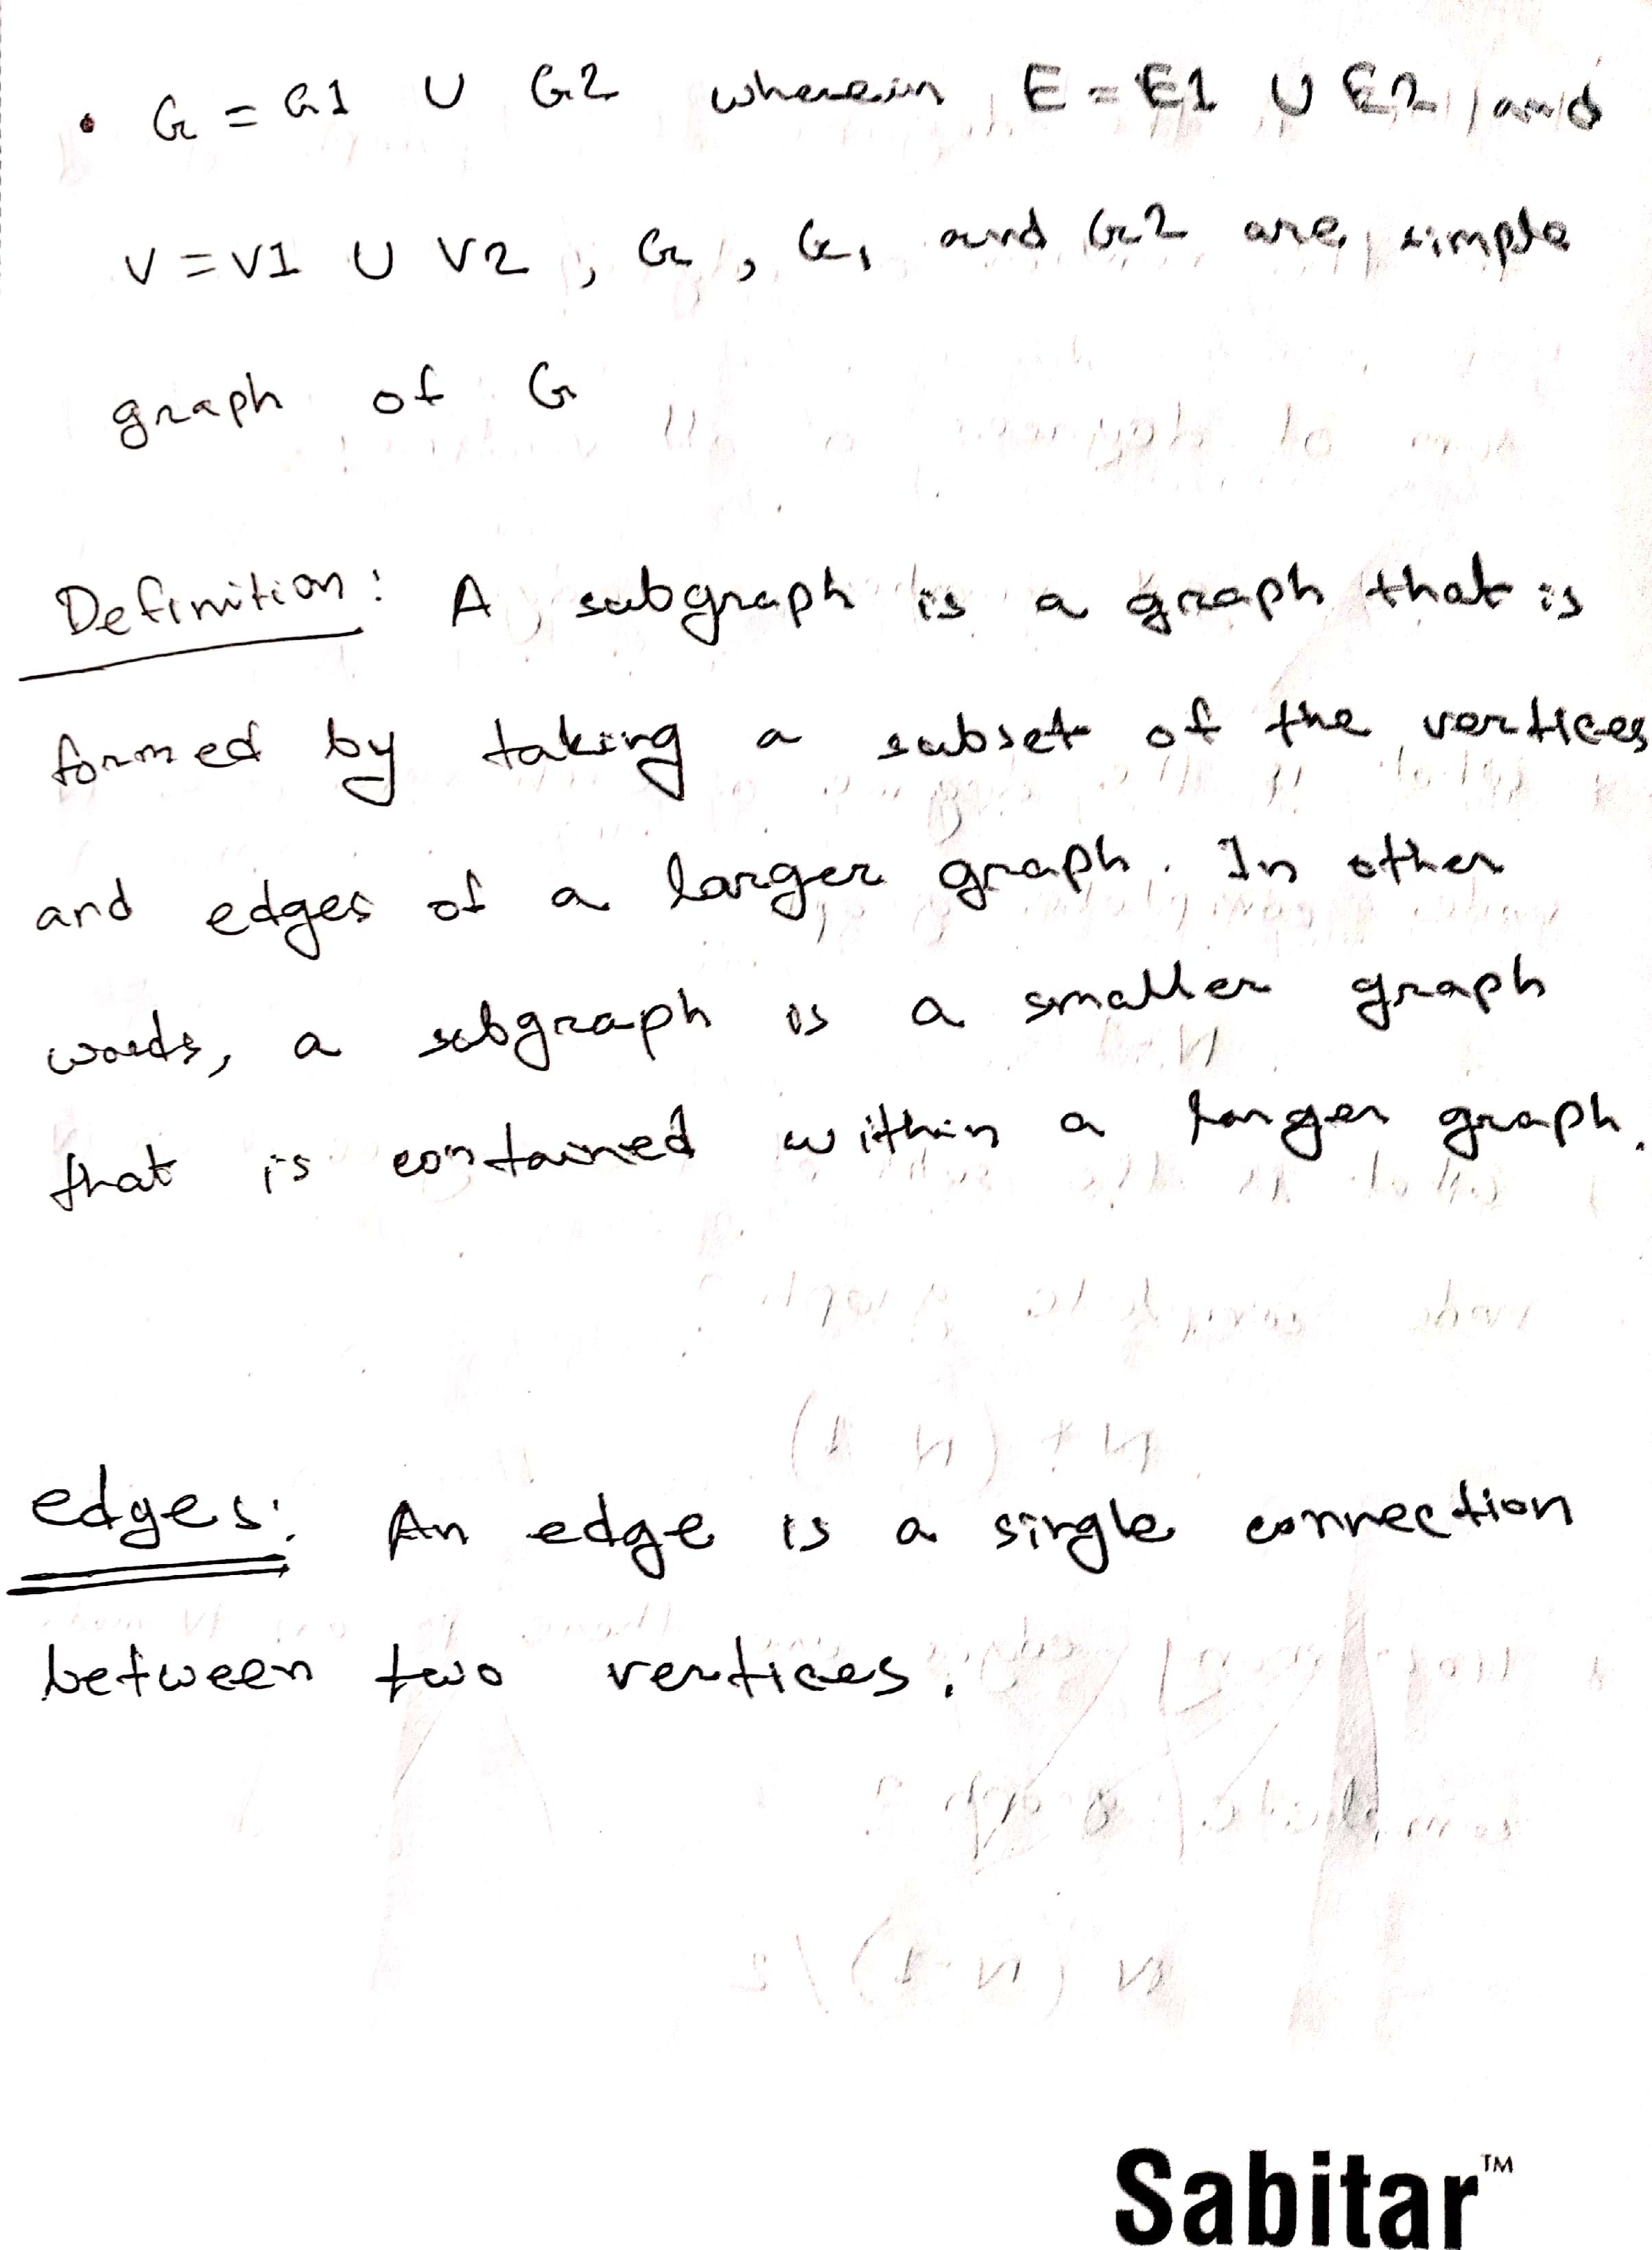 • G = G1 ∪ G2 wherein E = E1 ∪ E2 and
V = V1 ∪ V2 , G , G1 and G2 are simple
graph of G
Definition: A subgraph is a graph that is
formed by taking a subset of the vertices
and edges of a larger graph. In other
words, a subgraph is a smaller graph
that is contained within a larger graph.
edges: An edge is a single connection
between two vertices.
Sabitar™